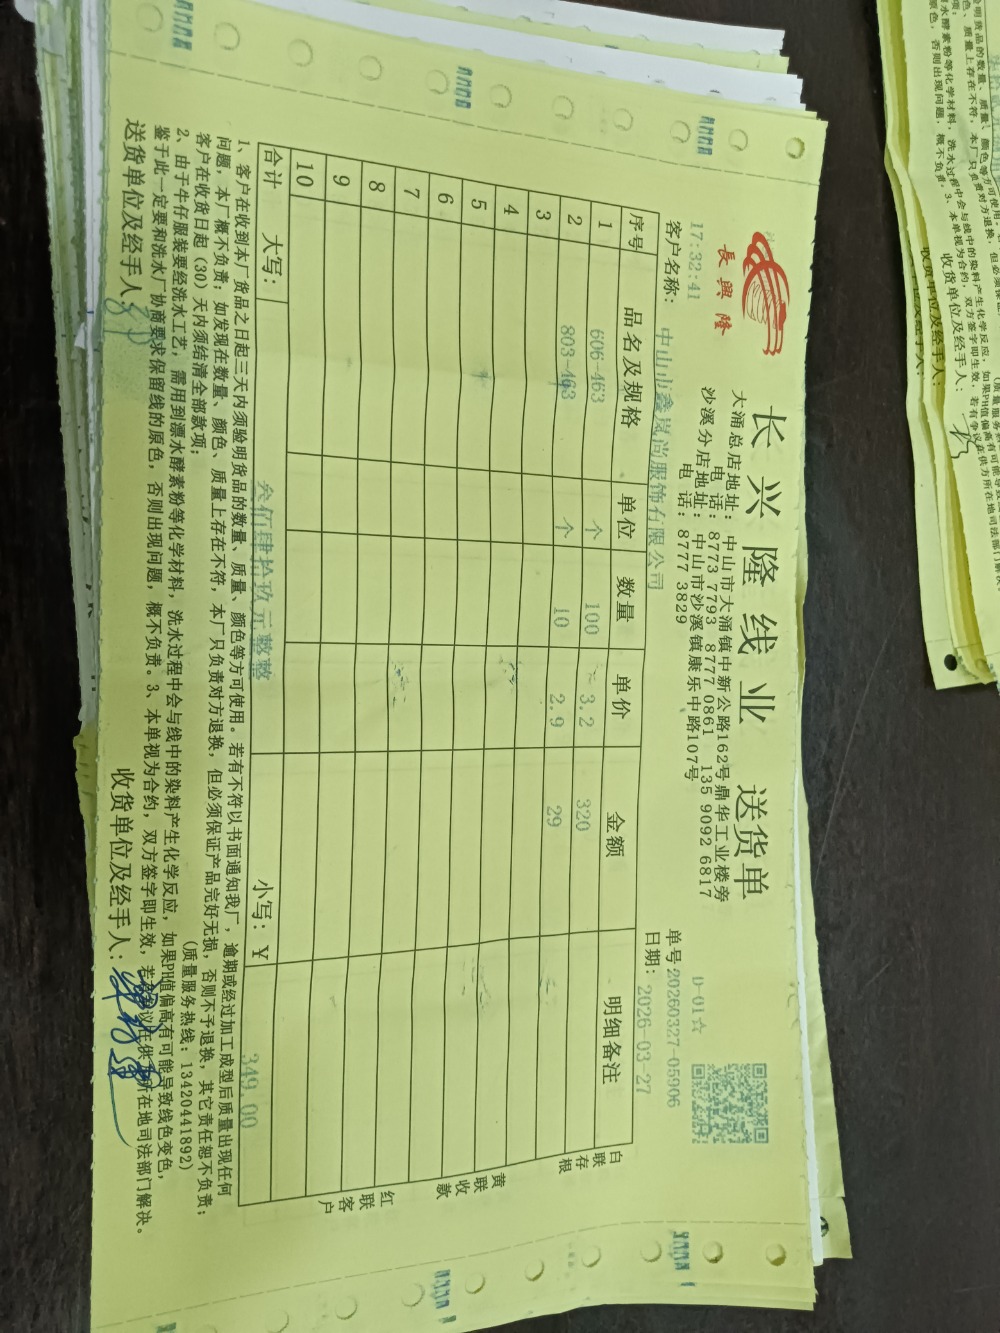 長興隆
长兴隆线业 送货单
大涌总店地址：中山市大涌镇中新公路162号鼎华工业楼旁
电 话：8773 7793 8777 0861 135 9092 6817
沙溪分店地址：中山市沙溪镇康乐中路107号
电 话：8777 3829
D-01☆
17:32:41
单号20260327-05906
客户名称：中山市鑫岚尚服饰有限公司
日期：2026-03-27
序号 品名及规格 单位 数量 单价 金额 明细备注
1 606-463 个 100 3.2 320
2 803-463 个 10 2.9 29
3
4
5
6
7
8
9
10
合计 大写：叁佰肆拾玖元整整 小写：￥ 349.00
白联存根
黄联收款
红联客户
1、客户在收到本厂货品之日起三天内须验明货品的数量、质量、颜色等方可使用。若有不符以书面通知我厂，逾期或经过加工成型后质量出现任何
问题，本厂概不负责；如发现在数量、颜色、质量上存在不符，本厂只负责对方退换，但必须保证产品完好无损，否则不予退换，其它责任恕不负责；
客户在收货日起（30）天内须结清全部款项；
（质量服务热线：13420441892）
2、由于牛仔服装要经洗水工艺，需用到漂水酵素粉等化学材料，洗水过程中会与线中的染料产生化学反应，如果PH值偏高有可能导致线色变色，
鉴于此一定要和洗水厂协商要求保留线的原色，否则出现问题，概不负责。3、本单视为合约，双方签字即生效，若有争议在供方所在地司法部门解决。
送货单位及经手人：
收货单位及经手人：
收货单位及经手人：